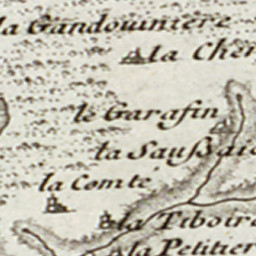 la Gandouinière
la Cher
le Garafin
la Saussaie
la Comté
la Tiboire
la Petitier